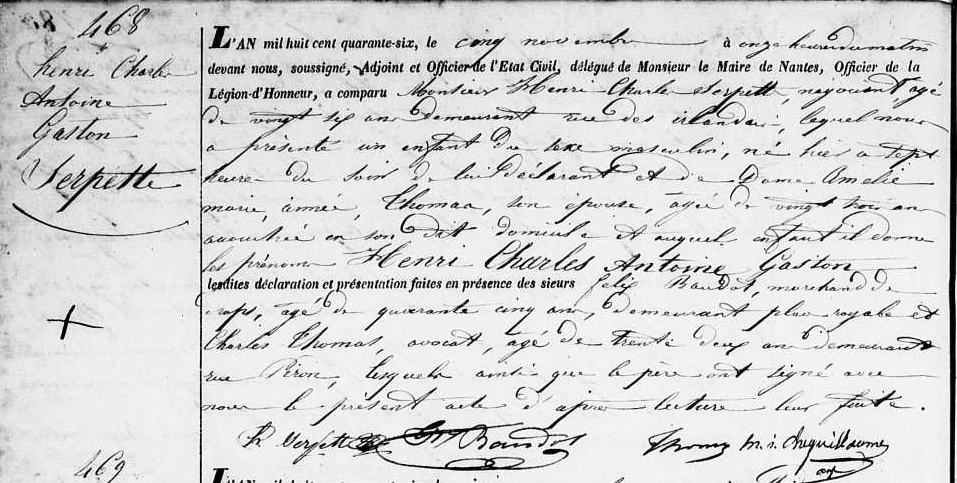 468
Henri Charles
Antoine
Gaston
Serpette
L'AN mil huit cent quarante-six, le cinq novembre à onze heures du matin
devant nous, soussigné, Adjoint et Officier de l'Etat Civil, délégué de Monsieur le Maire de Nantes, Officier de la
Légion-d'Honneur, a comparu Monsieur Henri Charles Serpette, négociant, agé
de vingt six ans demeurant rue des irlandais, lequel nous
a présenté un enfant du sexe masculin, né hier à sept
heures du soir de lui déclarant et de Dame Amélie
marie, aimée, Thomas, son épouse, agée de vingt trois ans
accouchée en son dit domicile et auquel enfant il donne
les prénoms Henri Charles Antoine Gaston
lesdites déclaration et présentation faites en présence des sieurs felix Baudot, marchand de
draps, agé de quarante cinq ans, demeurant place royale et
Charles Thomas, avocat, agé de trente deux ans demeurant
rue Piron, lesquels ainsi que le père ont signé avec
nous le présent acte d'après lecture leur faite.
h Serpette Baudot Thomas
469
L'AN mil huit cent quarante-six, le